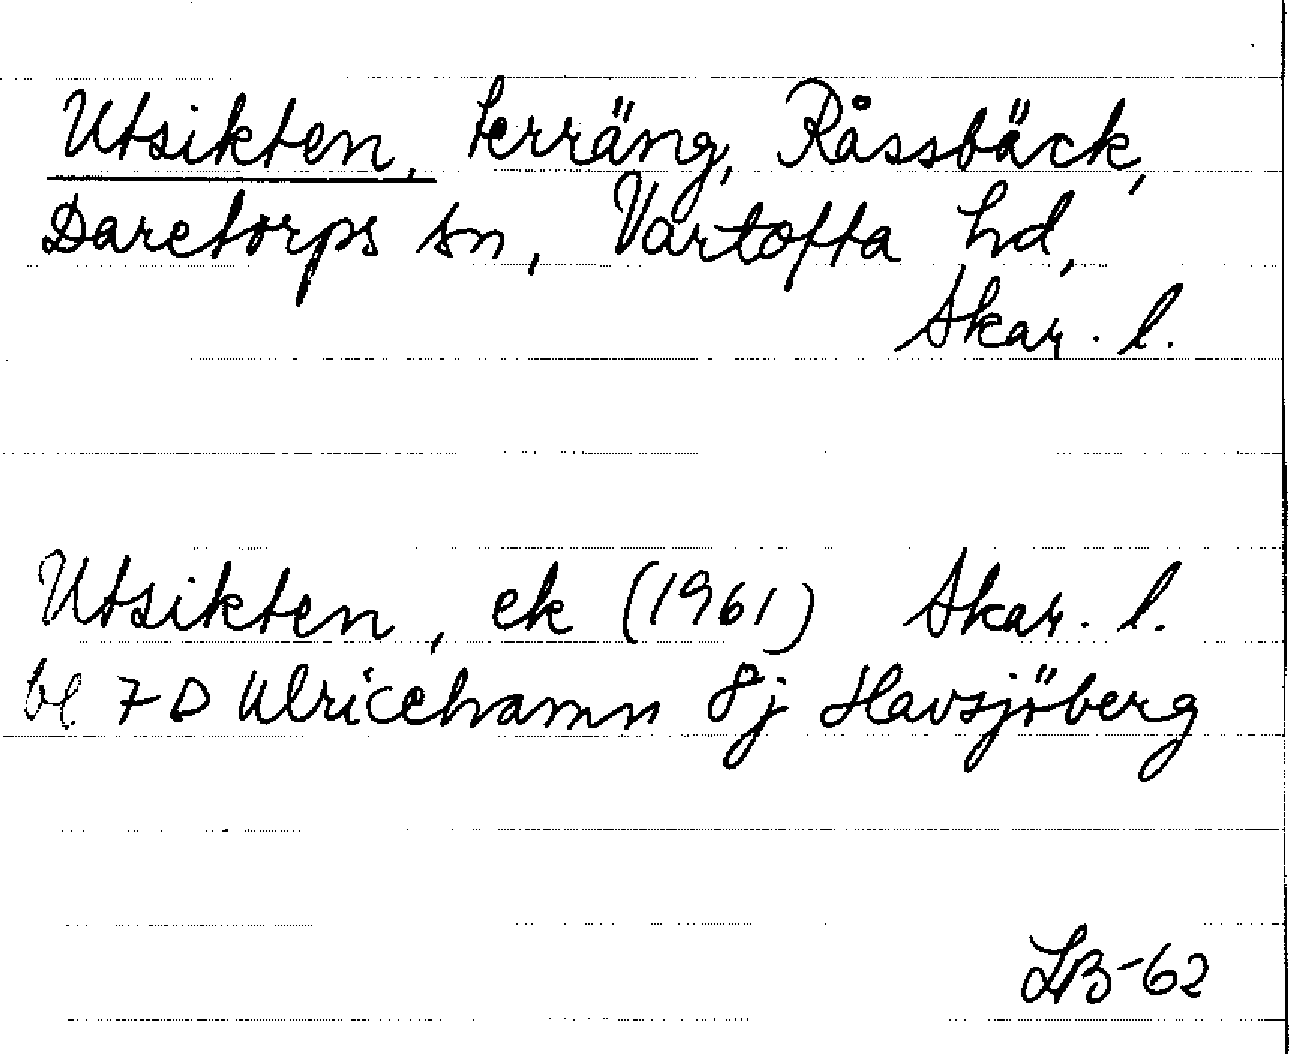 Utsikten, terräng, Råssbäck,
Daretorps sn, Vartofta hd,
Skar. l.
Utsikten, ek (1961) Skar. l.
bl 7 D Ulricehamn 8j Havsjöberg
LB-62